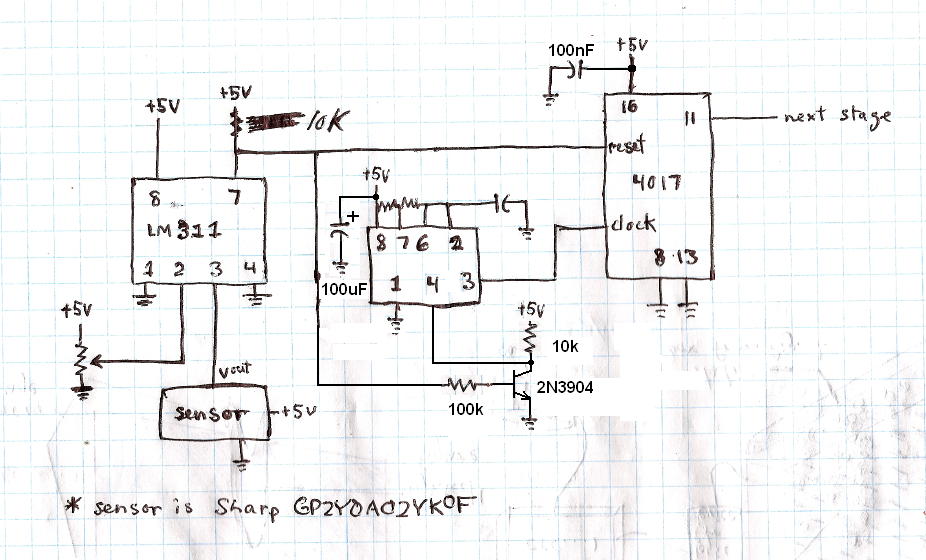 100nF
+5V
+5V
+5V
10K
16
11
next stage
reset
4017
clock
8 13
8
7
LM311
1 2 3 4
+5V
+
8 7 6 2
1 4 3
100uF
+5V
10k
2N3904
100k
+5V
Vout
sensor
+5V
* sensor is Sharp GP2Y0A02YK0F